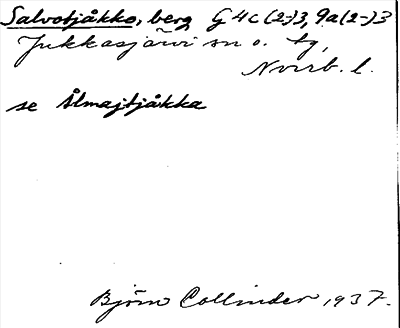 Salvotjåkko, berg G4c(2-)3, 9a(2-)3
Jukkasjärvi sn o. tg,
Nvrrb. l.
se Ålmajtjåkka
Björn Collinder 1937.